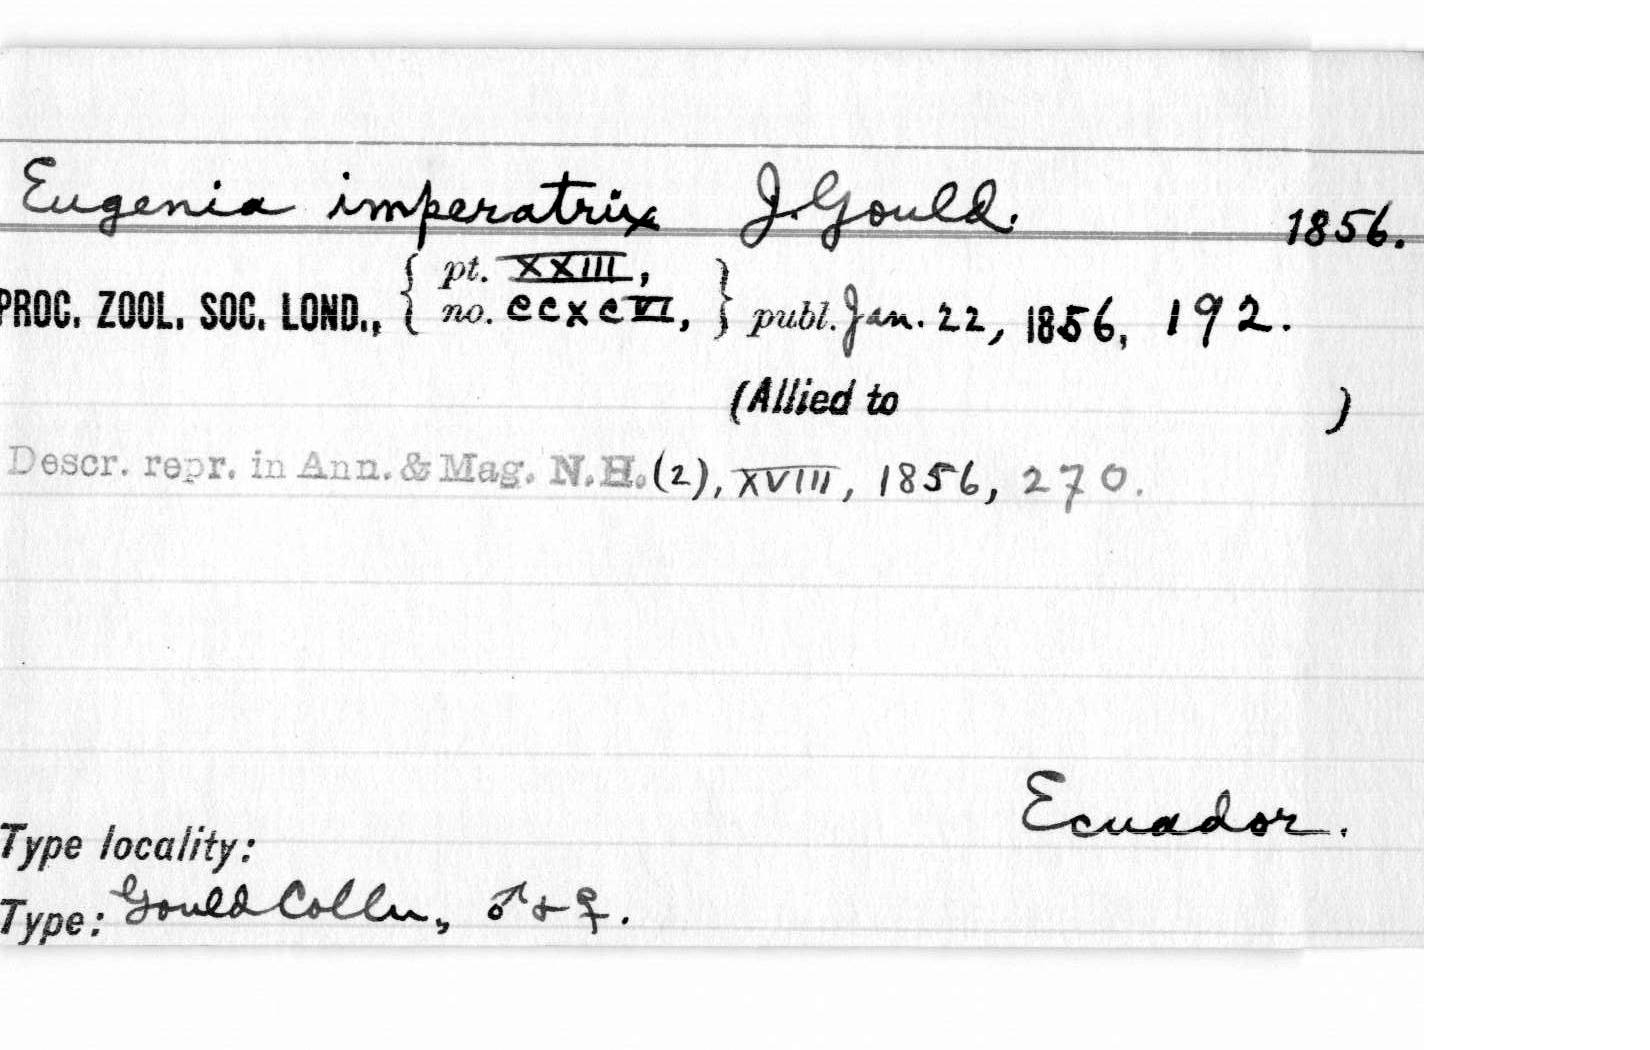 Eugenia imperatrix J. Gould. 1856.
PROC. ZOOL. SOC. LOND., { pt. XXIII, no. CCXCVI, } publ. Jan. 22, 1856, 192.
(Allied to )
Descr. repr. in Ann. & Mag. N.H. (2), XVIII, 1856, 270.
Ecuador.
Type locality:
Type: Gould Colln., ♂ & ♀.